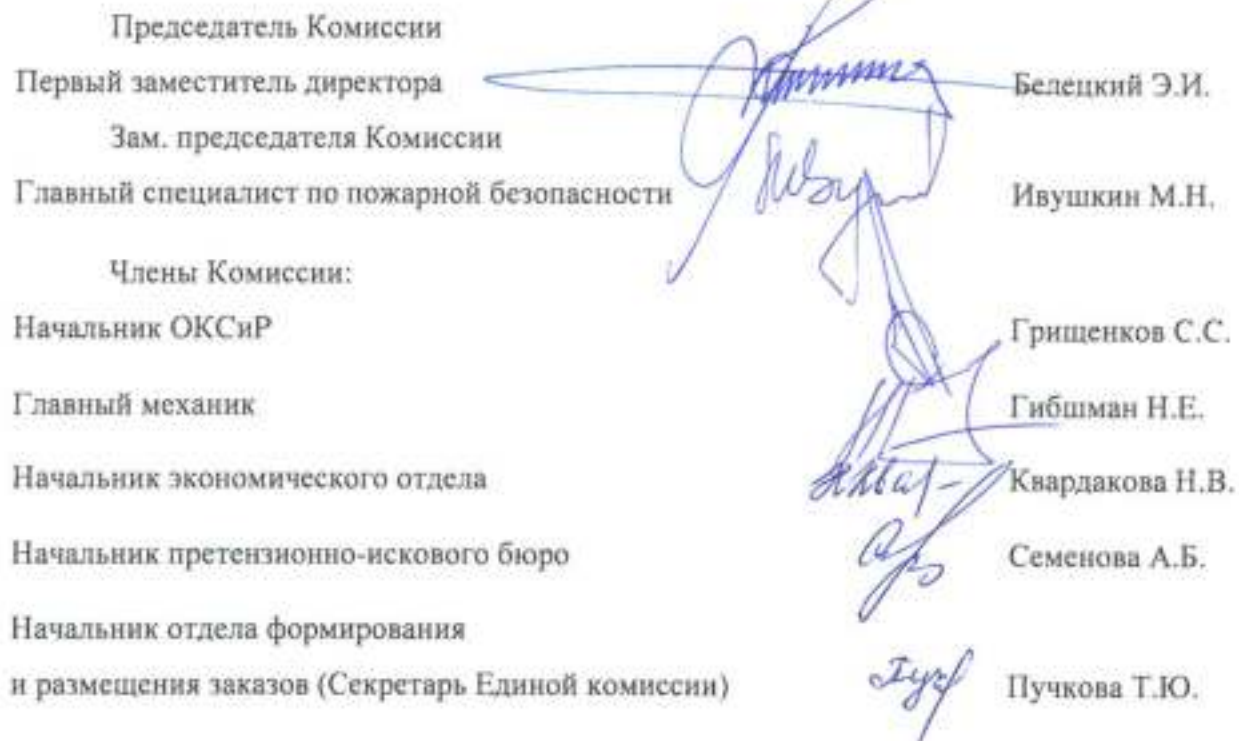 Председатель Комиссии
Первый заместитель директора Белецкий Э.И.
Зам. председателя Комиссии
Главный специалист по пожарной безопасности Ивушкин М.Н.
Члены Комиссии:
Начальник ОКСиР Грищенков С.С.
Главный механик Гибшман Н.Е.
Начальник экономического отдела Квардакова Н.В.
Начальник претензионно-искового бюро Семенова А.Б.
Начальник отдела формирования
и размещения заказов (Секретарь Единой комиссии) Пучкова Т.Ю.